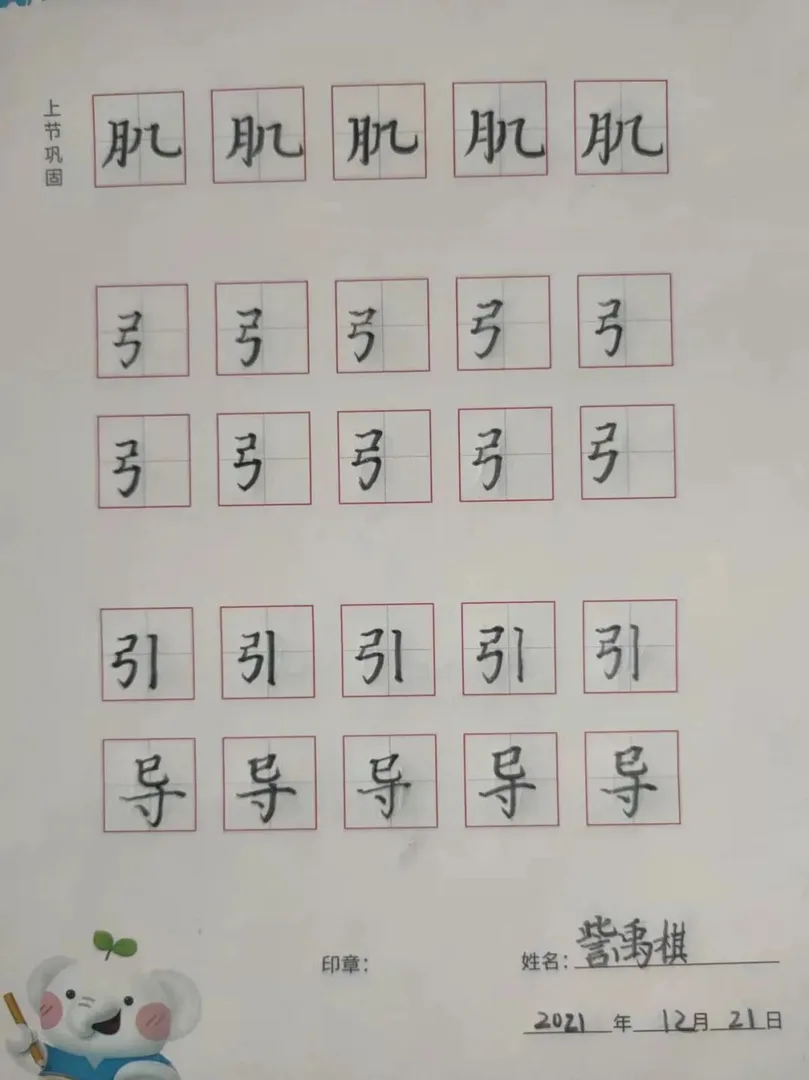 上节巩固
肌 肌 肌 肌 肌
弓 弓 弓 弓 弓
弓 弓 弓 弓 弓
引 引 引 引 引
导 导 导 导 导
印章: 姓名: 訾禹棋
2021年12月21日